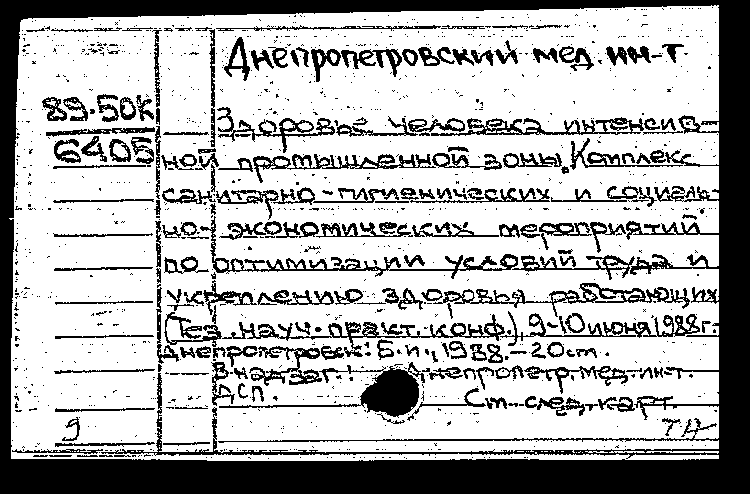 Днепропетровский мед. ин-т
89-50к
6405
Здоровье человека интенсив-
ной промышленной зоны. Комплекс
санитарно-гигиенических и социаль-
но-экономических мероприятий
по оптимизации условий труда и
укреплению здоровья работающих
(Тез. науч.-практ. конф.), 9-10 июня 1988 г.-
Днепропетровск: Б.и., 1988.-20 см.
В надзаг.: Днепропетр. мед. ин-т.
ДСП.
См. след. карт.
9